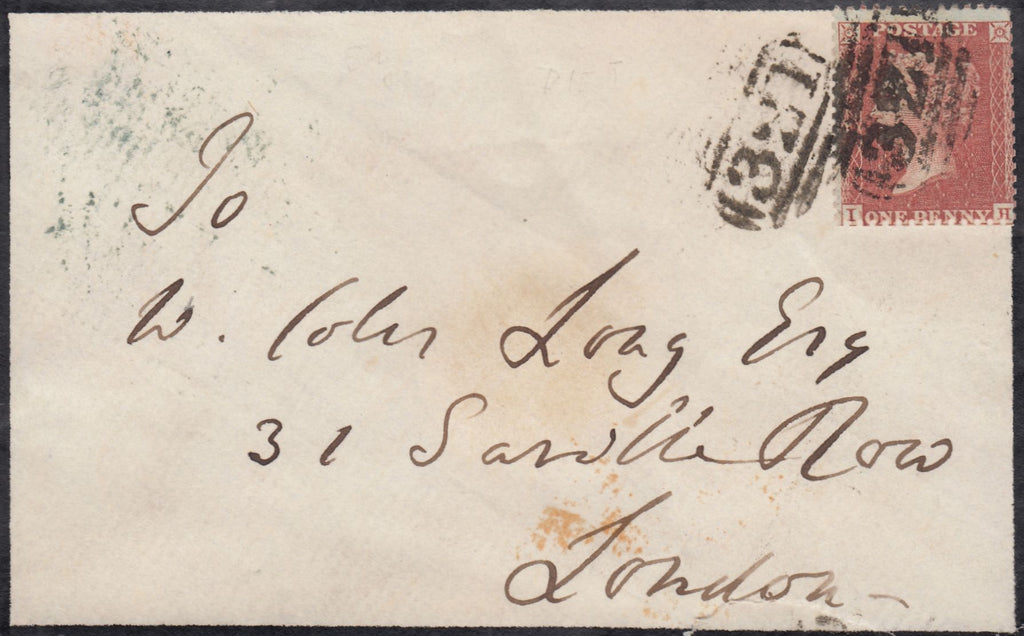 POSTAGE
321
321
I ONE PENNY H
To
W. Coles Long Esq
31 Saville Row
London